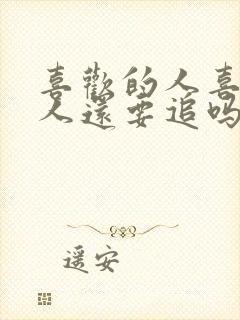 喜歡的人喜
人還要追嗎
遥安